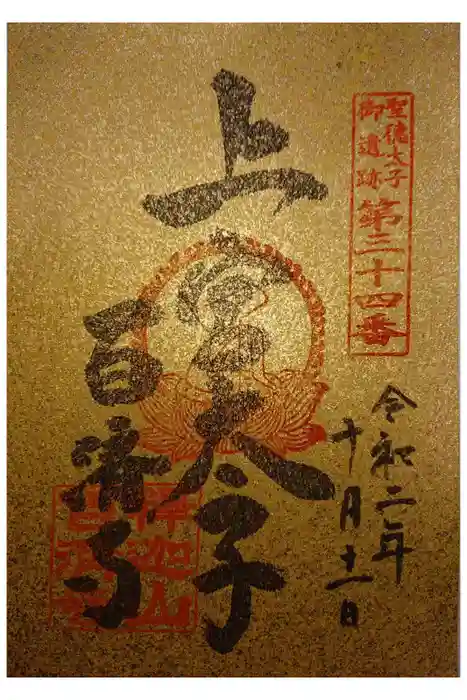 聖徳太子
御遺跡
第三十四番
令和二年
十月十一日
上宮太子
百済寺